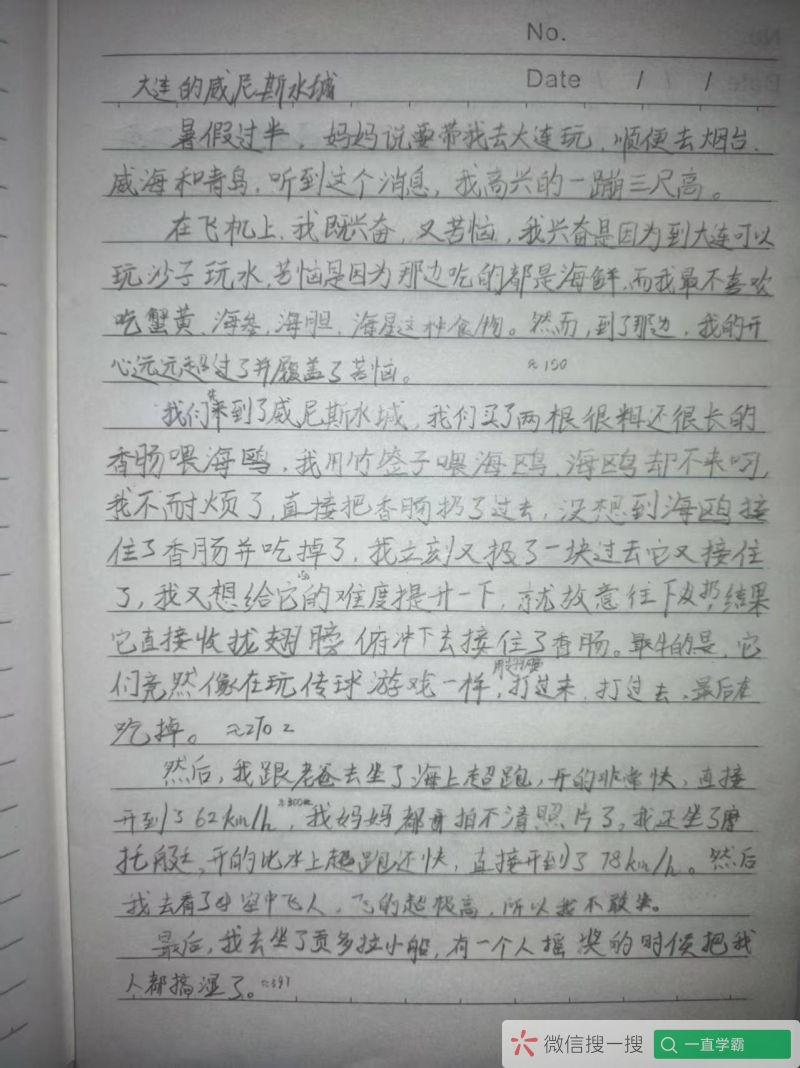 No.
Date / / /
大连的威尼斯水城
暑假过半，妈妈说要带我去大连玩，顺便去烟台、
威海和青岛，听到这个消息，我高兴的一蹦三尺高。
在飞机上，我既兴奋，又苦恼，我兴奋是因为到大连可以
玩沙子玩水，苦恼是因为那边吃的都是海鲜，而我最不喜欢
吃蟹黄、海参、海胆、海星这种食物。然而，到了那边，我的开
心远远超过了并履盖了苦恼。 ≈150
我们来到了威尼斯水城，我们买了两根很粗还很长的
香肠喂海鸥，我用竹签子喂海鸥，海鸥却不来叼，
我不耐烦了，直接把香肠扔了过去，没想到海鸥接
住了香肠并吃掉了，我立刻又扔了一块过去它又接住
了，我又想给它的难度提升一下，就故意往下扔，结果
它直接收拢翅膀俯冲下去接住了香肠。最牛的是，它
们竟然像在玩传球游戏一样，打过来，打过去，最后在
吃掉。 ≈270
然后，我跟老爸去坐了海上超跑，开的非常快，直接
开到了62km/h，我妈妈都拍不清照片了，我还坐了摩
托艇，开的比水上超跑还快，直接开到了78km/h。然后
我去看了空中飞人，飞的超极高，所以我不敢坐。
最后，我去坐了贡多拉小船，有一个人摇桨的时候把我
人都搞湿了。≈391
微信搜一搜
一直学霸